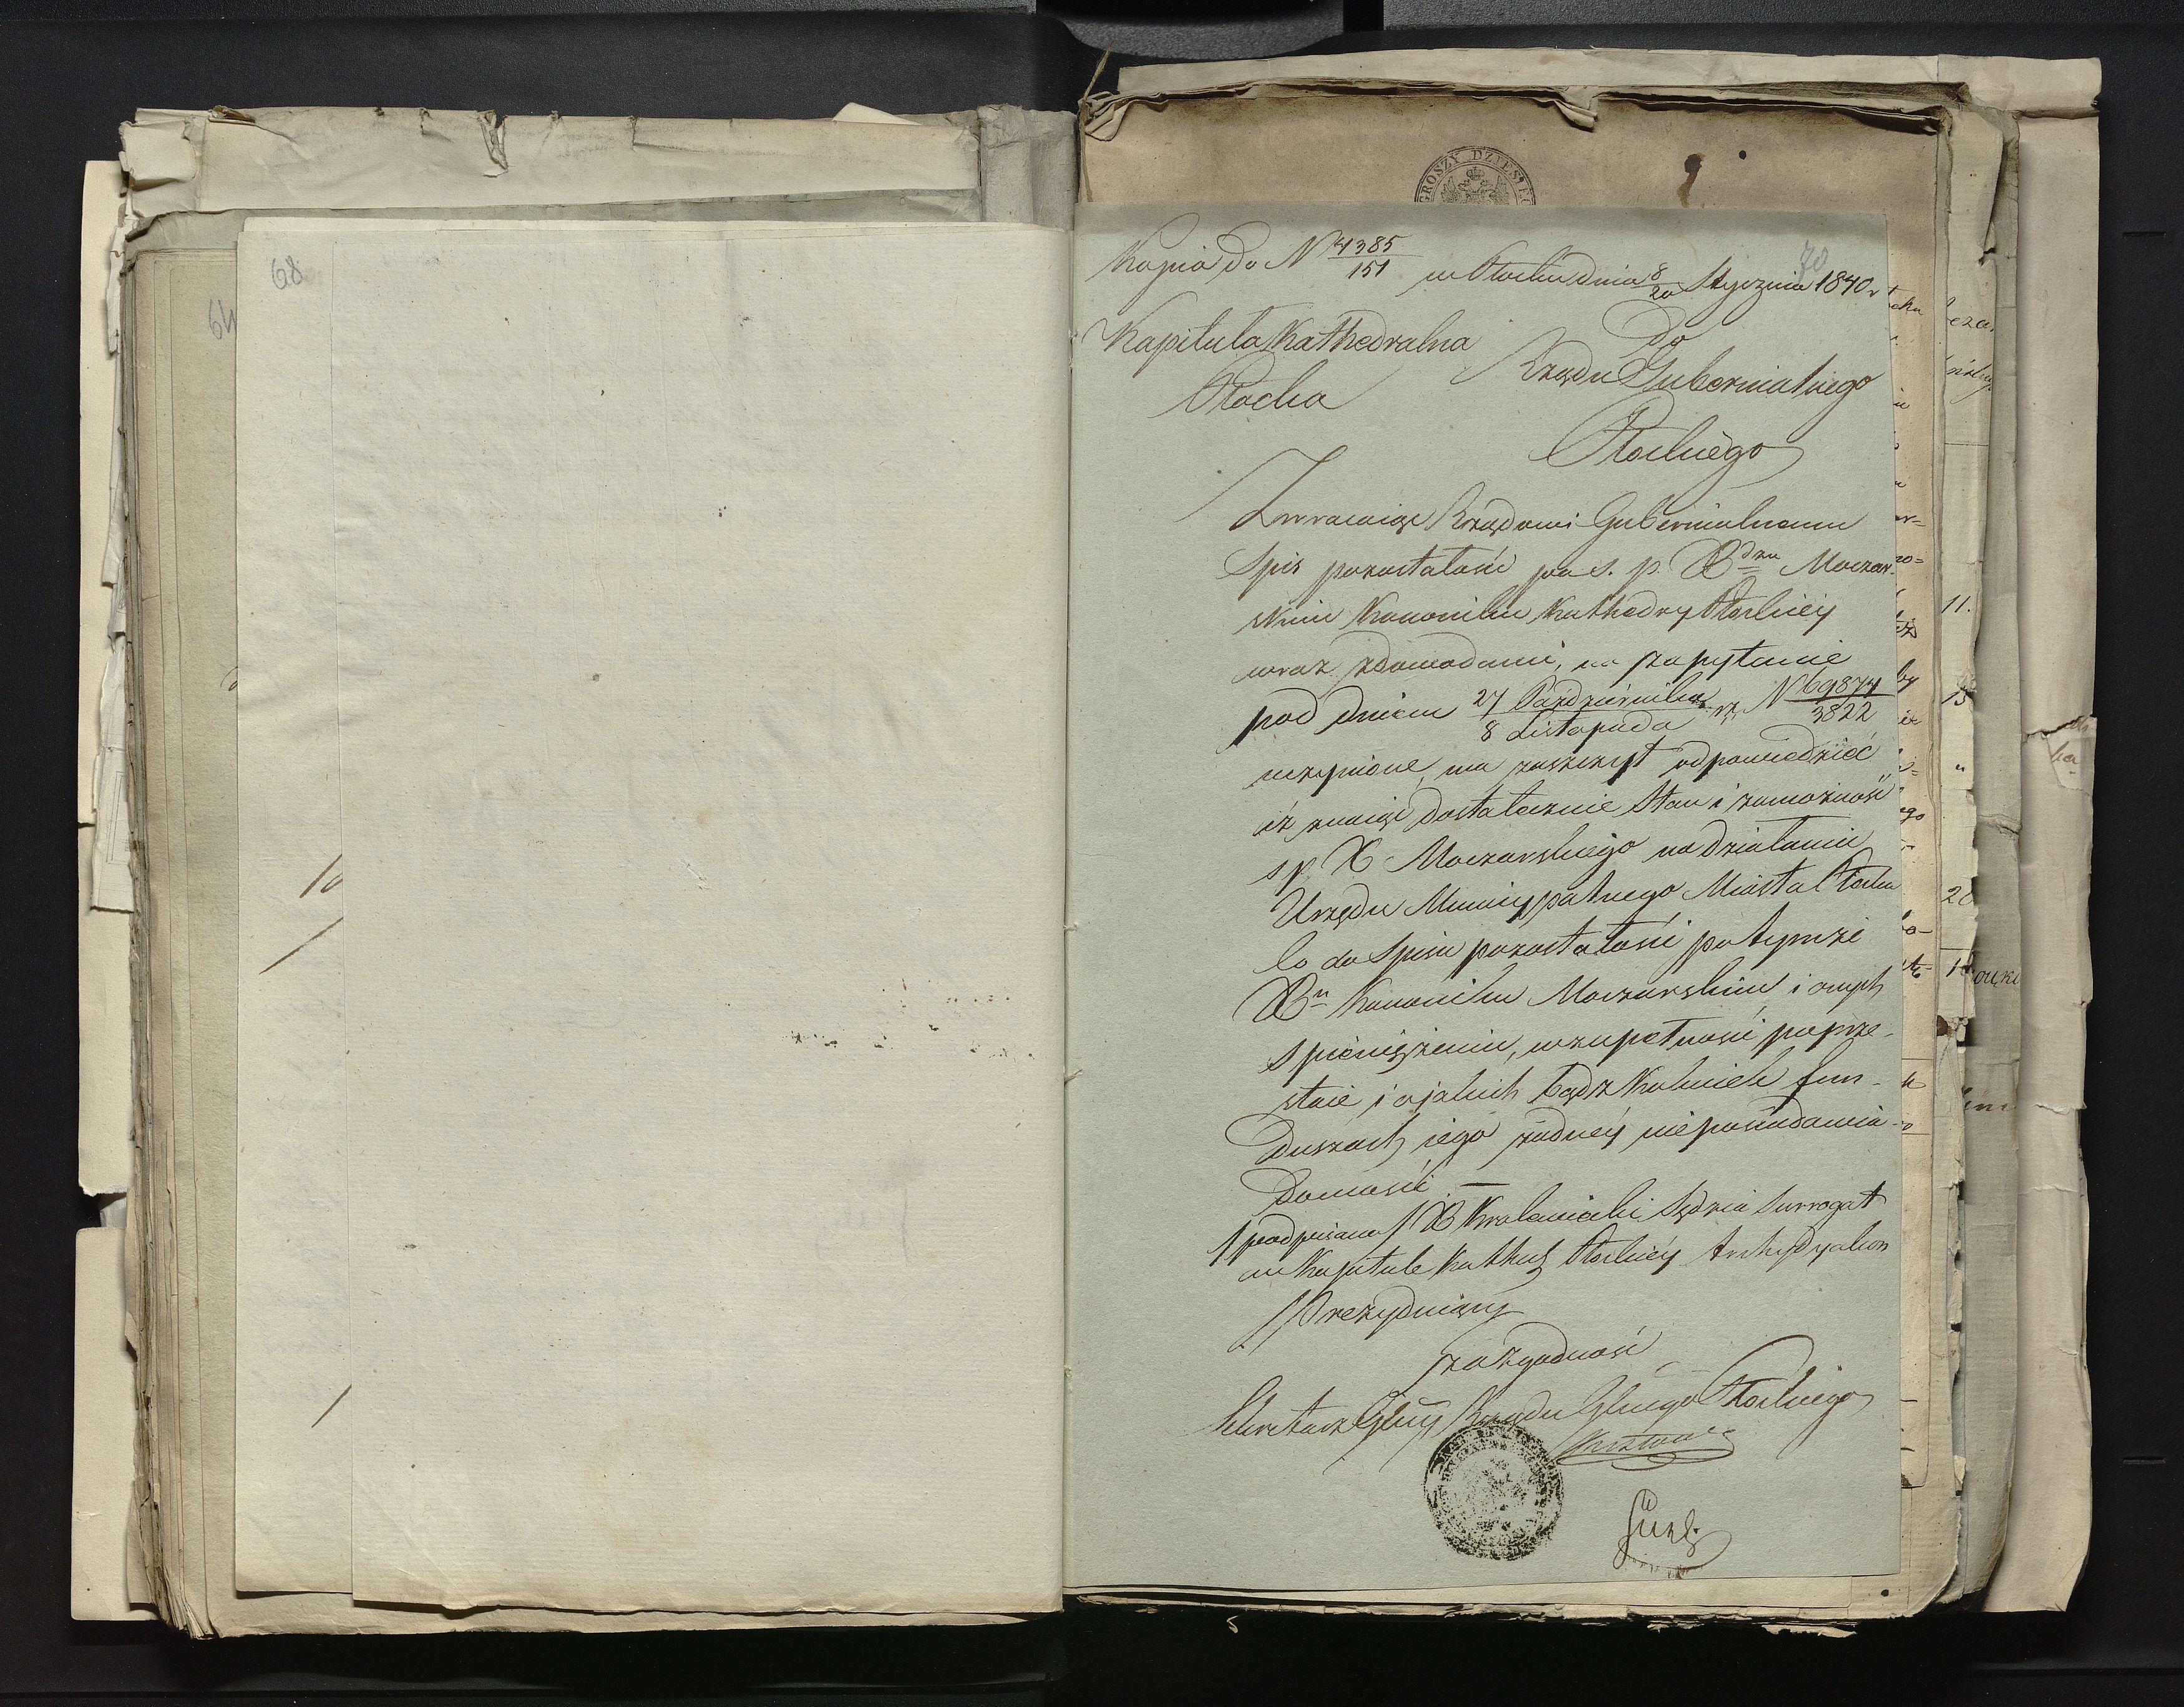 68
64
10
GROSZY DZIESIĘĆ
70
Kopia do N 4385/151 w Płocku dnia 8/20 Stycznia 1840 r
Kapituła Kathedralna
Płocka
do
Rządu Gubernialnego
Płockiego
Zwracaiąc Rządowi Gubernialnemu
Spis pozostałości po s. p. Xdzu Moczar-
skim Kanoniku Kathedry Płockiéy
wraz zdowodami, na zapytanie
pod dniem 27 Października / 8 Listopada rz N 69874/3822
uczynione ma zaszczyt odpowiedzieć
iż znaiąc dostatecznie Stan i zamożność
sp X Moczarskiego na działaniu
Urzędu Municypalnego Miasta Płocka
co do Spisu pozostałości po tymże
Xu Kanoniku Moczarskim i onych
spieniężeniu, wzupełności poprze-
staie i o jakich bądz kolwiek fun-
duszach iego żadnéy nieposiada wia-
domości —
/podpisano/ X Sędzia Surrogat
Kapitule Płockiéy Archydyakon
Prezyduiący
za zgodność
Sekretarz Rządu Płockiego